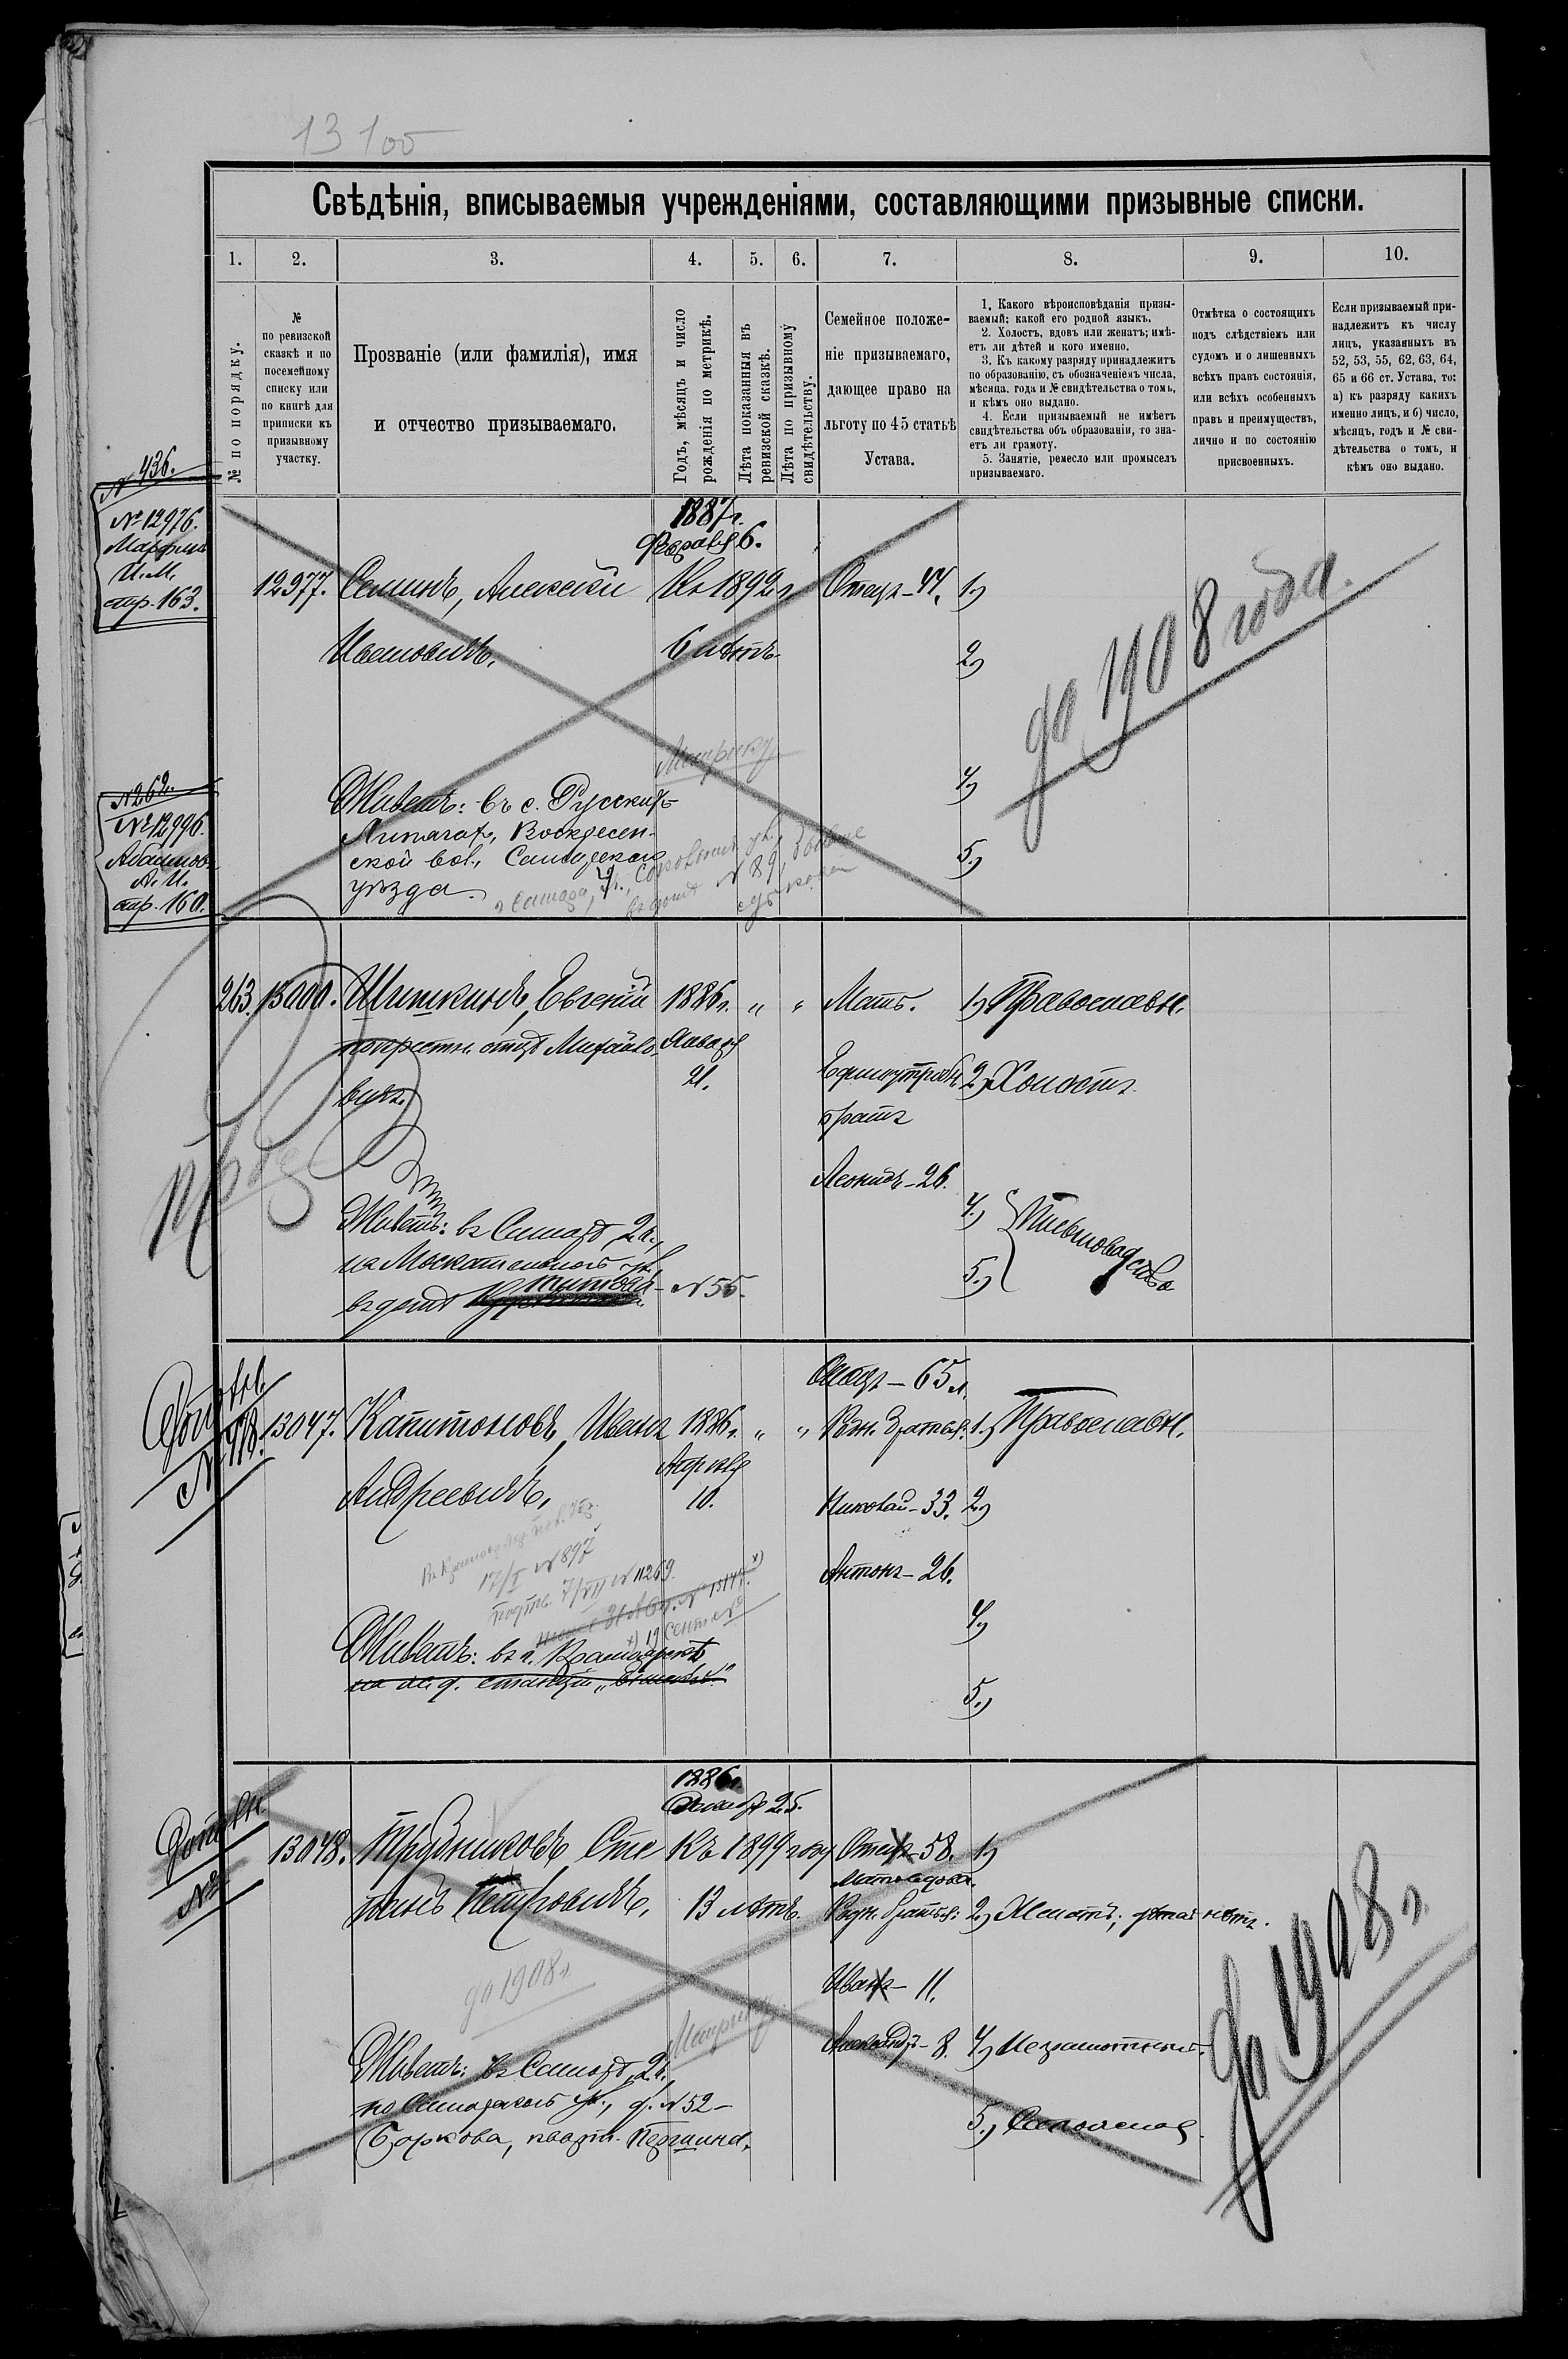 13100
Свѣдѣнія, вписываемыя учрежденіями, составляющими призывные списки.
1. 2. 3. 4. 5. 6. 7. 8. 9. 10.
№ по порядку.
№
по ревизской
сказкѣ и по
посемейному
списку или
по книгѣ для
приписки къ
призывному
участку.
Прозваніе (или фамилія), имя
и отчество призываемаго.
Годъ, мѣсяцъ и число
рожденія по метрикѣ.
Лѣта показанныя въ
ревизской сказкѣ.
Лѣта по призывному
свидѣтельству.
Семейное положе-
ніе призываемаго,
дающее право на
льготу по 45 статьѣ
Устава.
1. Какого вѣроисповѣданія призы-
ваемый; какой его родной языкъ.
2. Холостъ, вдовъ или женатъ; имѣ-
етъ ли дѣтей и кого именно.
3. Къ какому разряду принадлежитъ
по образованію, съ обозначеніемъ числа,
мѣсяца, года и № свидѣтельства о томъ,
и кѣмъ оно выдано.
4. Если призываемый не имѣетъ
свидѣтельства объ образованіи, то зна-
етъ ли грамоту.
5. Занятіе, ремесло или промыселъ
призываемаго.
Отмѣтка о состоящихъ
подъ слѣдствіемъ или
судомъ и о лишенныхъ
всѣхъ правъ состоянія,
или всѣхъ особенныхъ
правъ и преимуществъ,
лично и по состоянію
присвоенныхъ.
Если призываемый при-
надлежитъ къ числу
лицъ, указанныхъ въ
52, 53, 55, 62, 63, 64,
65 и 66 ст. Устава, то:
а) къ разряду какихъ
именно лицъ, и б) число,
мѣсяцъ, годъ и № сви-
дѣтельства о томъ, и
кѣмъ оно выдано.
№ 436.
№ 12976.
И. М.
стр. 163.
1887 г.
Февраля 6.
12977. Семинъ, Алексѣй Къ 1892 г. Отецъ - 44. 1)
6 лѣтъ 2)
до 1908 года.
Метрику
4)
Живетъ: въ с. Русскихъ
Липягахъ, Воскресен-
ской вол., Самарскаго
уѣзда.
№ 89
5)
№ 262.
№ 12996.
А. И.
стр. 160.
263. 13000. Шишкинъ, Евгеній 1886 г. " " Мать. 1) Православн.
по крестн. отцу Михайло- Января Единоутробн. 2) Холостъ
вичъ. 21. братъ
Леонидъ - 26.
4) Письмоводство
Живетъ: въ Самарѣ, 2 ч.,
на Москательной ул.,
въ домѣ № 55.
5)
Отецъ - 65 л.
13047. Капитоновъ, Иванъ 1886 г. " " Родн. братья: 1) Православн.
Андреевичъ, Апрѣля
10. Николай - 33. 2)
17/I № 897
Антонъ - 26.
№ 11269.
4)
Живетъ: въ г. Красноярскѣ
на ж. д. станціи
5)
1886 г.
Декабря 25.
Дополн.
№
13048. Трудниковъ Сте Къ 1899 году Отецъ - 58. 1)
Мать Ѳедора.
панъ Петровичъ, 13 лѣтъ. Родн. братья: 2) Женатъ; дѣтей нѣтъ.
до 1908 г.
Иванъ - 11.
Метрику
Александръ - 8. 4) Неграмотный.
Живетъ: въ Самарѣ, 2 ч.
по Самарской ул., д. № 52 -
Боркова, кварт.
5)
до 1908 г.